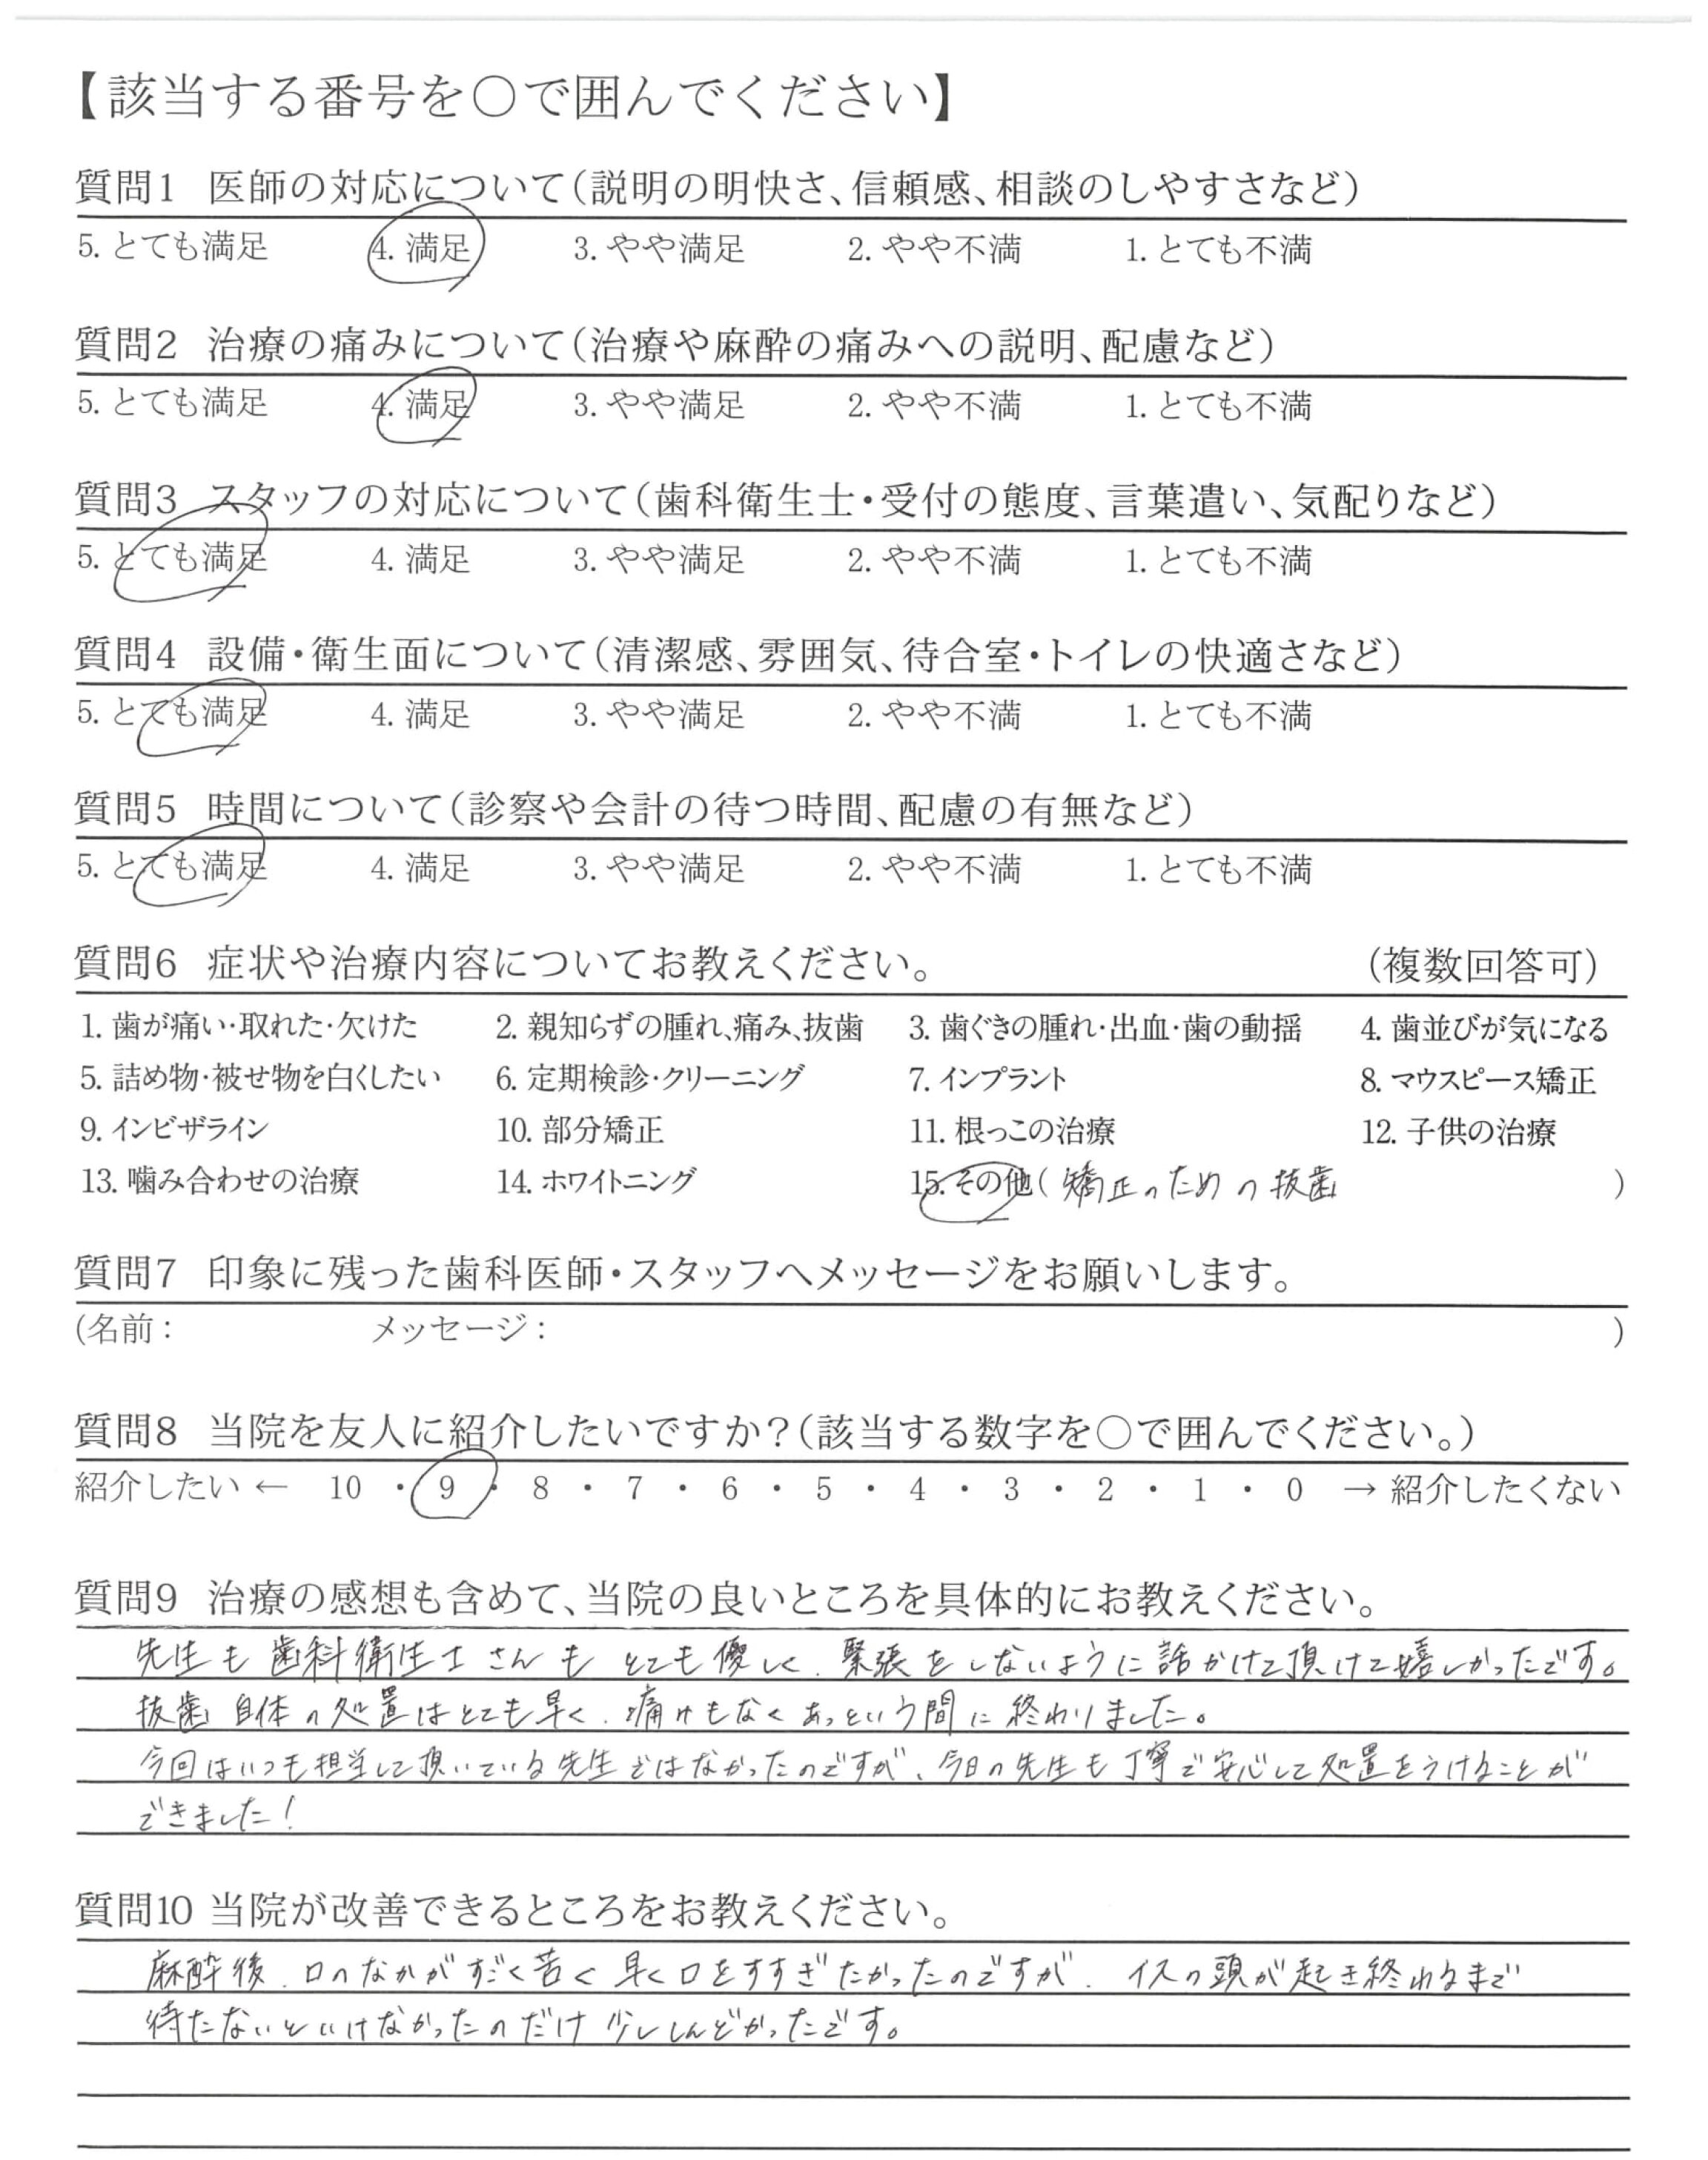 【該当する番号を〇で囲んでください】
質問1 医師の対応について(説明の明快さ、信頼感、相談のしやすさなど)
5. とても満足 4. 満足 3. やや満足 2. やや不満 1. とても不満
質問2 治療の痛みについて(治療や麻酔の痛みへの説明、配慮など)
5. とても満足 4. 満足 3. やや満足 2. やや不満 1. とても不満
質問3 スタッフの対応について(歯科衛生士・受付の態度、言葉遣い、気配りなど)
5. とても満足 4. 満足 3. やや満足 2. やや不満 1. とても不満
質問4 設備・衛生面について(清潔感、雰囲気、待合室・トイレの快適さなど)
5. とても満足 4. 満足 3. やや満足 2. やや不満 1. とても不満
質問5 時間について(診察や会計の待つ時間、配慮の有無など)
5. とても満足 4. 満足 3. やや満足 2. やや不満 1. とても不満
質問6 症状や治療内容についてお教えください。 (複数回答可)
1. 歯が痛い・取れた・欠けた 2. 親知らずの腫れ、痛み、抜歯 3. 歯ぐきの腫れ・出血・歯の動揺 4. 歯並びが気になる
5. 詰め物・被せ物を白くしたい 6. 定期検診・クリーニング 7. インプラント 8. マウスピース矯正
9. インビザライン 10. 部分矯正 11. 根っこの治療 12. 子供の治療
13. 噛み合わせの治療 14. ホワイトニング 15. その他( 矯正のための抜歯 )
質問7 印象に残った歯科医師・スタッフへメッセージをお願いします。
(名前: メッセージ: )
質問8 当院を友人に紹介したいですか?(該当する数字を〇で囲んでください。)
紹介したい ← 10 ・ 9 ・ 8 ・ 7 ・ 6 ・ 5 ・ 4 ・ 3 ・ 2 ・ 1 ・ 0 → 紹介したくない
質問9 治療の感想も含めて、当院の良いところを具体的にお教えください。
先生も歯科衛生士さんもとても優しく、緊張をしないように話かけて頂けて嬉しかったです。
抜歯自体の処置はとても早く、痛みもなくあっという間に終わりました。
今回はいつも担当して頂いている先生ではなかったのですが、今日の先生も丁寧で安心して処置をうけることが
できました!
質問10 当院が改善できるところをお教えください。
麻酔後、口のなかがすごく苦く早く口をすすぎたかったのですが、イスの頭が起き終わるまで
待たないといけなかったのだけ少ししんどかったです。